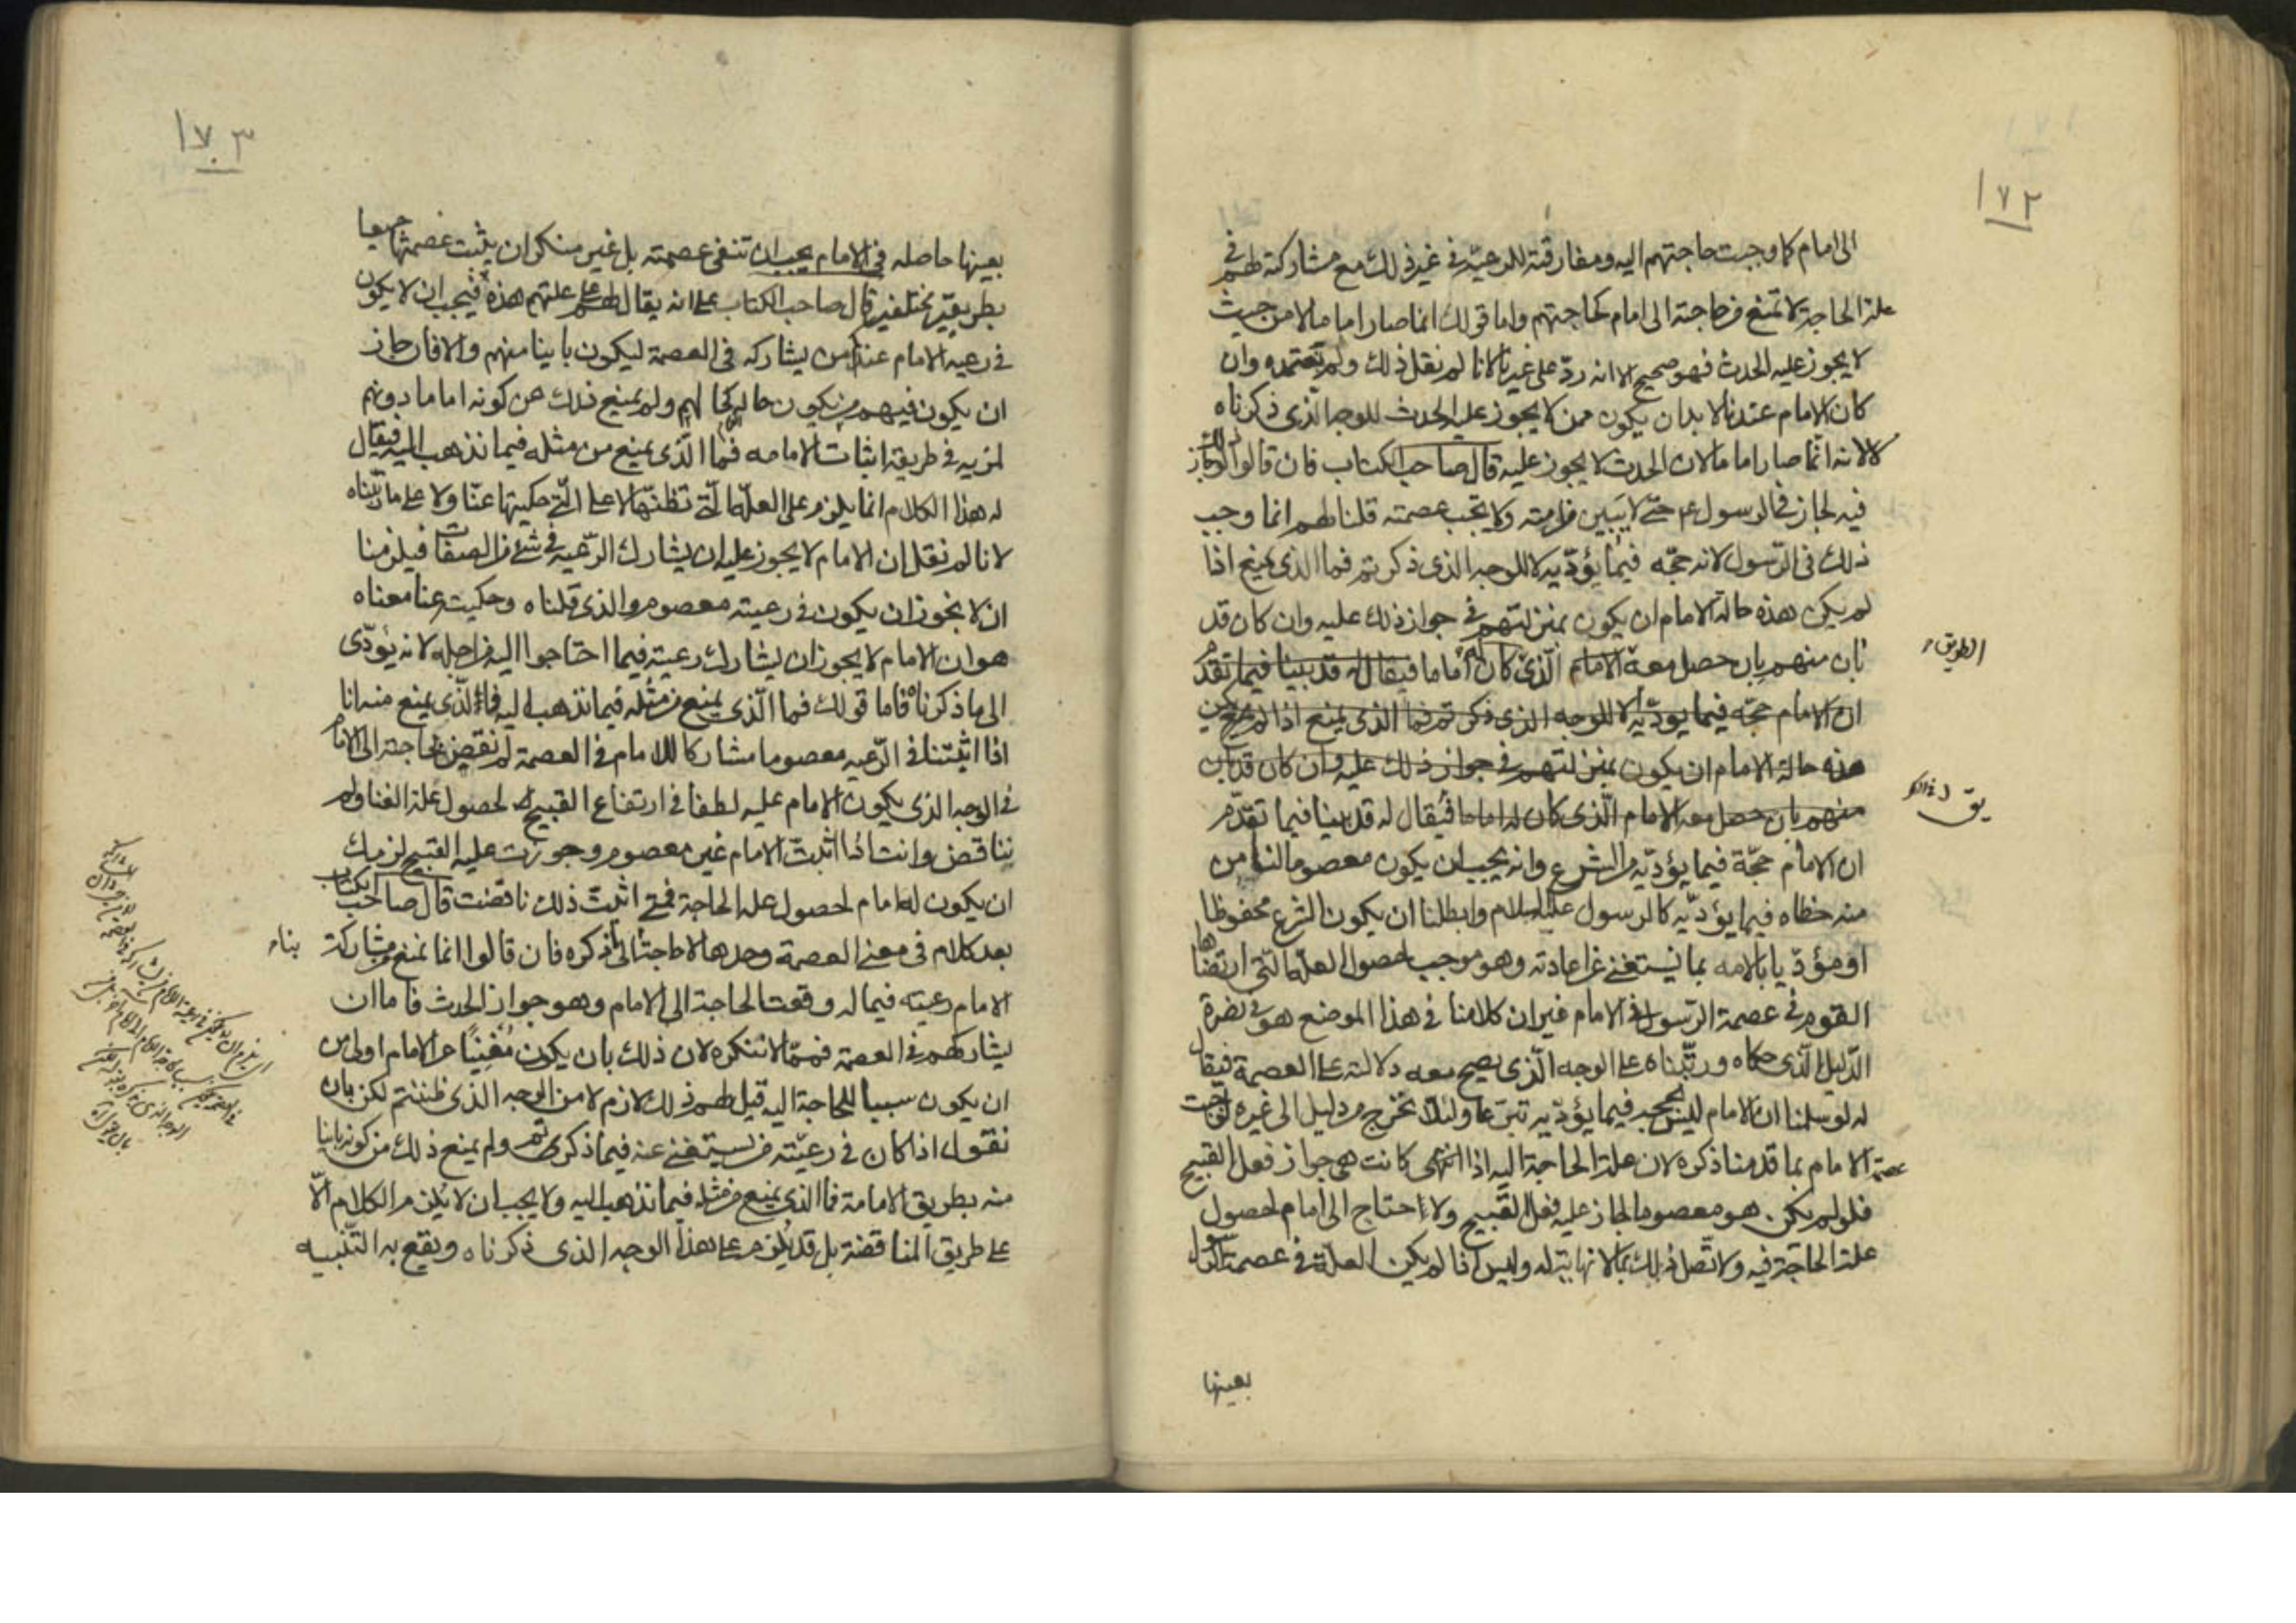 ١٧٢
الى امام كما وجبت حاجتهم اليه ومفارقته للرعيّة في غير ذلك مع مشاركته لهم في
علة الحاجة لا تمنع من حاجته الى امام كحاجتهم واما قولك انما صار اماما لا من حيث
لا يجوز عليه الحدث فهو صحيح الا انه ردّ على غيرنا لانا لم نقل ذلك ولم نعتمده وان
كان الامام عندنا لا بد ان يكون ممن لا يجوز عليه الحدث للوجه الذي ذكرناه
لا لانه انما صار اماما لان الحدث لا يجوز عليه قال صاحب الكتاب فان قالوا لو جاز ذلك
فيه لجاز في الرسول ع م حتى لا يبين من امته ولا تجب عصمته قلنا لهم انما وجب
ذلك في الرّسول لانه حجّه فيما يؤدّيه لا للوجه الذي ذكرتم فما الذي يمنع اذا
لم يكن هذه حالة الامام ان يكون بمنزلتهم في جواز ذلك عليه وان كان قد
بان منهم بان حصل معه الامام الّذي كان له اماما فيقال له قد بينا فيما تقدم
الطريق
ان الامام حجّه فيما يودّيه لا للوجه الذي ذكرتم فما الذي يمنع اذا لم يكن
هذه حالة الامام ان يكون بمنزلتهم في جواز ذلك عليه وان كان قد بان
منهم بان حصل معه الامام الّذي كان له اماما فيقال له قد بينا فيما تقدّم
يق
ان الامام حجّة فيما يؤدّيه من الشرع وانه يجب ان يكون معصوما لنأمن
منه خطاه فيما يؤدّيه كالرسول عليه السلام وابطلنا ان يكون الشرع محفوظا
او مؤدّيا بالامه بما نستغني عن اعادته وهو موجب لحصول العلّة التي ارتضاها
القوم في عصمة الرّسول في الامام غير ان كلامنا في هذا الموضع هو في نصرة
الدّليل الّذي حكاه ورتّبناه على الوجه الّذي يصح معه دلالته على العصمة فيقال
له لو سلمنا ان الامام ليس بحجه فيما يؤدّيه تبرعا ولئلا نخرج من دليل الى غيره لوجبت
عصمة الامام بما قدمنا ذكره لان علة الحاجة اليه اذا كانت هي جواز فعل القبيح
فلو لم يكن هو معصوما لجاز عليه فعل القبيح ولاحتاج الى امام لحصول
علة الحاجة فيه ولاتّصل ذلك بما لا نهاية له وليس اذا لم يكن العلّة في عصمة الرّسول
بعينها
١٧٣
بعينها حاصله في الامام يجب ان تنفى عصمته بل غير منكر ان يثبت عصمتهما جميعا
بطريقين مختلفين قال صاحب الكتاب على انه يقال لهم على علتهم هذه فيجب ان لا يكون
في رعيه الامام عندكم من يشاركه في العصمة ليكون باينا منهم والا فان جاز
ان يكون فيهم من يكون حاله كحالهم ولم يمنع ذلك من كونه اماما دونهم
لمزيه في طريقة اثبات الامامه فما الّذي يمنع من مثله فيما نذهب اليه فيقال
له هذا الكلام انما يلزم على العلّة التي تظنّها لا على الّتي حكيتها عنّا ولا على ما رتّبناه
لانا لم نقل ان الامام لا يجوز عليه ان يشارك الرّعيه في شئ من الصفات فيلزمنا
ان لا نجوز ان يكون في رعيته معصوم والذي قلناه وحكيت عنا معناه
هو ان الامام لا يجوز ان يشارك رعيته فيما احتاجوا اليه من اجله لانه يؤدّى
الى ما ذكرناه فاما قولك فما الّذي يمنع من مثله فيما نذهب اليه فالّذي يمنع منه انا
اذا اثبتنا في الرّعيه معصوما مشاركا للامام في العصمة لم نقض بحاجته الى الامام
في الوجه الذي يكون الامام عليه لطفا في ارتفاع القبيح لحصول علة الغنا ولم
نناقض وانت اذا اثبتّ الامام غير معصوم وجوزت عليه القبيح لزمك
ان يكون له امام لحصول علة الحاجة فمتى اثبت ذلك ناقضت قال صاحب الكتاب
بعد كلام في معنى العصمة وحدها لا حاجة بنا الى ذكره فان قالوا انما نمنع من مشاركة
بنا
الامام رعيته فيما له وقعت الحاجة الى الامام وهو جواز الحدث فاما ان
يشاركهم في العصمة فممّا لا ننكره لان ذلك بان يكون مُغنِيًا عن الامام اولى من
ان يكون سببا للحاجة اليه قيل لهم ذلك لازم لا من الوجه الذي ظننتم لكن بان
نقول اذا كان في رعيّته من يستغني عنه فيما ذكرتم ولم يمنع ذلك من كونه باينا
منه بطريق الامامة فما الذي يمنع من مثله فيما نذهب اليه ولا يجب ان لا يلزم الكلام الّا
على طريق المناقضة بل قد يلزم على هذا الوجه الذي ذكرناه ويقع به التّنبيه